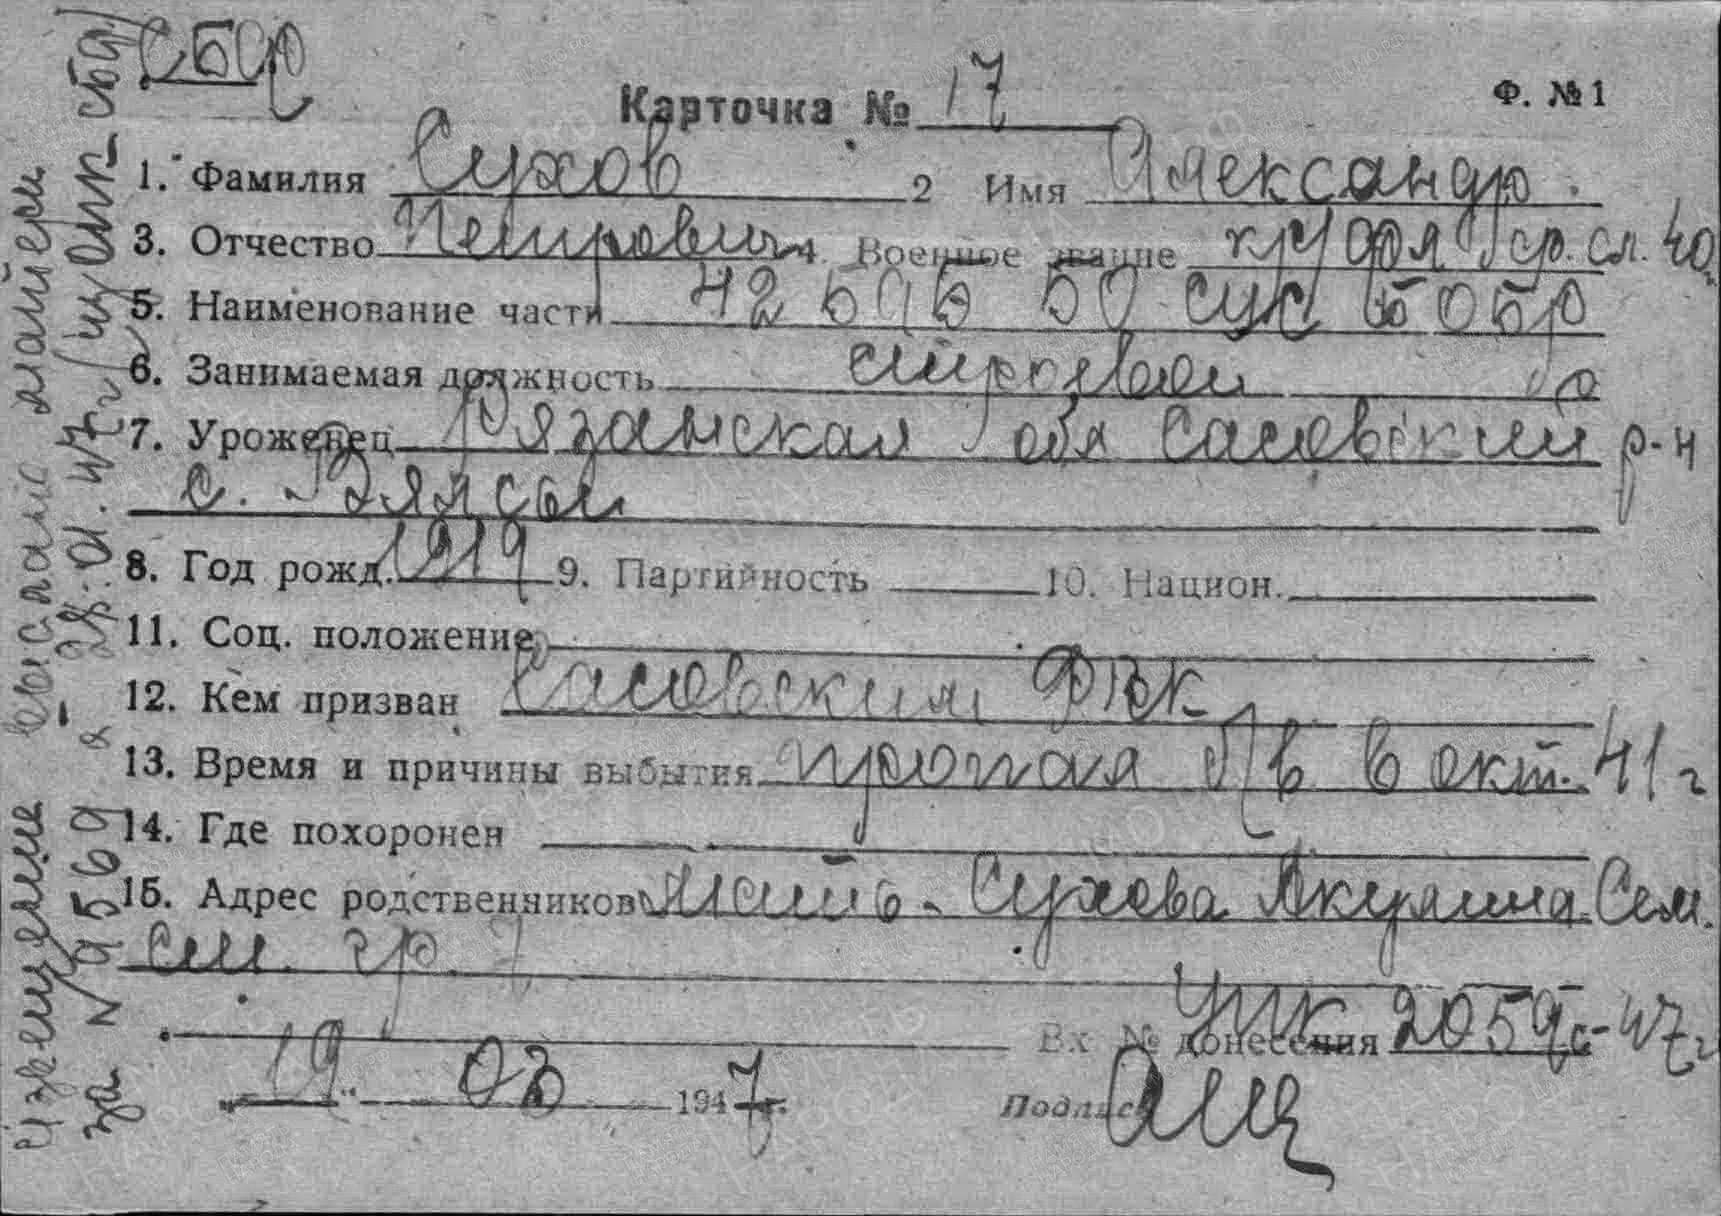 СБФ
Карточка № 17
Ф. № 1
1. Фамилия Сухов 2 Имя Александр
3. Отчество Петрович 4. Военное звание кр ср. сл. 40
5. Наименование части 42 50
6. Занимаемая должность строевой
7. Уроженец Рязанская обл Сасовский р-н
с. Вялсы
8. Год рожд. 1919 9. Партийность 10. Национ.
11. Соц. положение
12. Кем призван Сасовским РВК
13. Время и причины выбытия пропал б/в в окт. 41 г
14. Где похоронен
15. Адрес родственников мать - Сухова Акулина Сем.
см. гр. 7
Вх № донесения 2059с-47г
19 " 03 1947 г.
Подпись
Извещение выслано матери
за № 9569 28. 47г